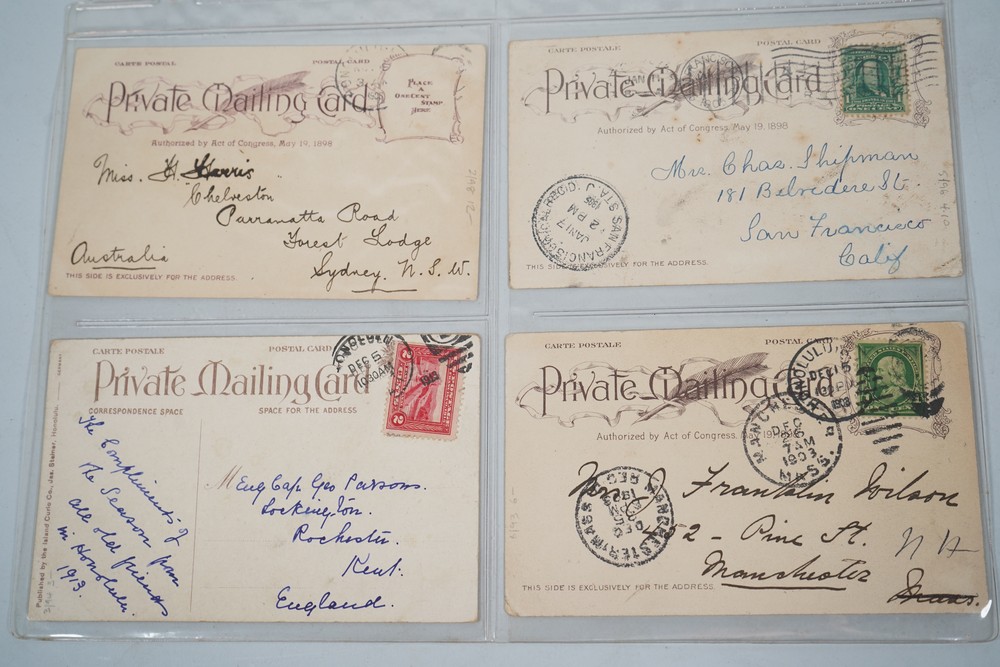 CARTE POSTAL
POSTAL CARD
Private Mailing Card
PLACE
A
ONE CENT
STAMP
HERE
Authorized by Act of Congress, May 19, 1898
Miss. H. Harris
Chelveston
Parramatta Road
Forest Lodge
Sydney. N. S. W.
Australia
THIS SIDE IS EXCLUSIVELY FOR THE ADDRESS.
CARTE POSTALE
POSTAL CARD
Private Mailing Card
Authorized by Act of Congress, May 19, 1898
Mrs. Chas. Shipman
181 Belvedere St.
San Francisco
Calif
SAN FRANCISCO
STA. J
JAN 17
2 PM
THIS SIDE IS EXCLUSIVELY FOR THE ADDRESS.
CARTE POSTALE
POSTAL CARD
Private Mailing Card
HONOLULU
DEC 5
1030 AM
1913
2 2
CORRESPONDENCE SPACE
SPACE FOR THE ADDRESS
The Compliments of
the Season from
all old friends
in Honolulu.
1913.
Eng Cap. Geo Parsons.
Lockington.
Rochester.
Kent.
England.
Published by the Island Curio Co., Jas. Steiner, Honolulu.
CARTE POSTALE
POSTAL CARD
Private Mailing Card
HONOLULU
DEC 15
1903
MANCHESTER
DEC
26
7 AM
1903
MASS.
Authorized by Act of Congress, May 19, 1898
Franklin Wilson
452 - Pine St.
Manchester
N H
Mass.
MANCHESTER MASS
REC'D
THIS SIDE IS EXCLUSIVELY FOR THE ADDRESS.